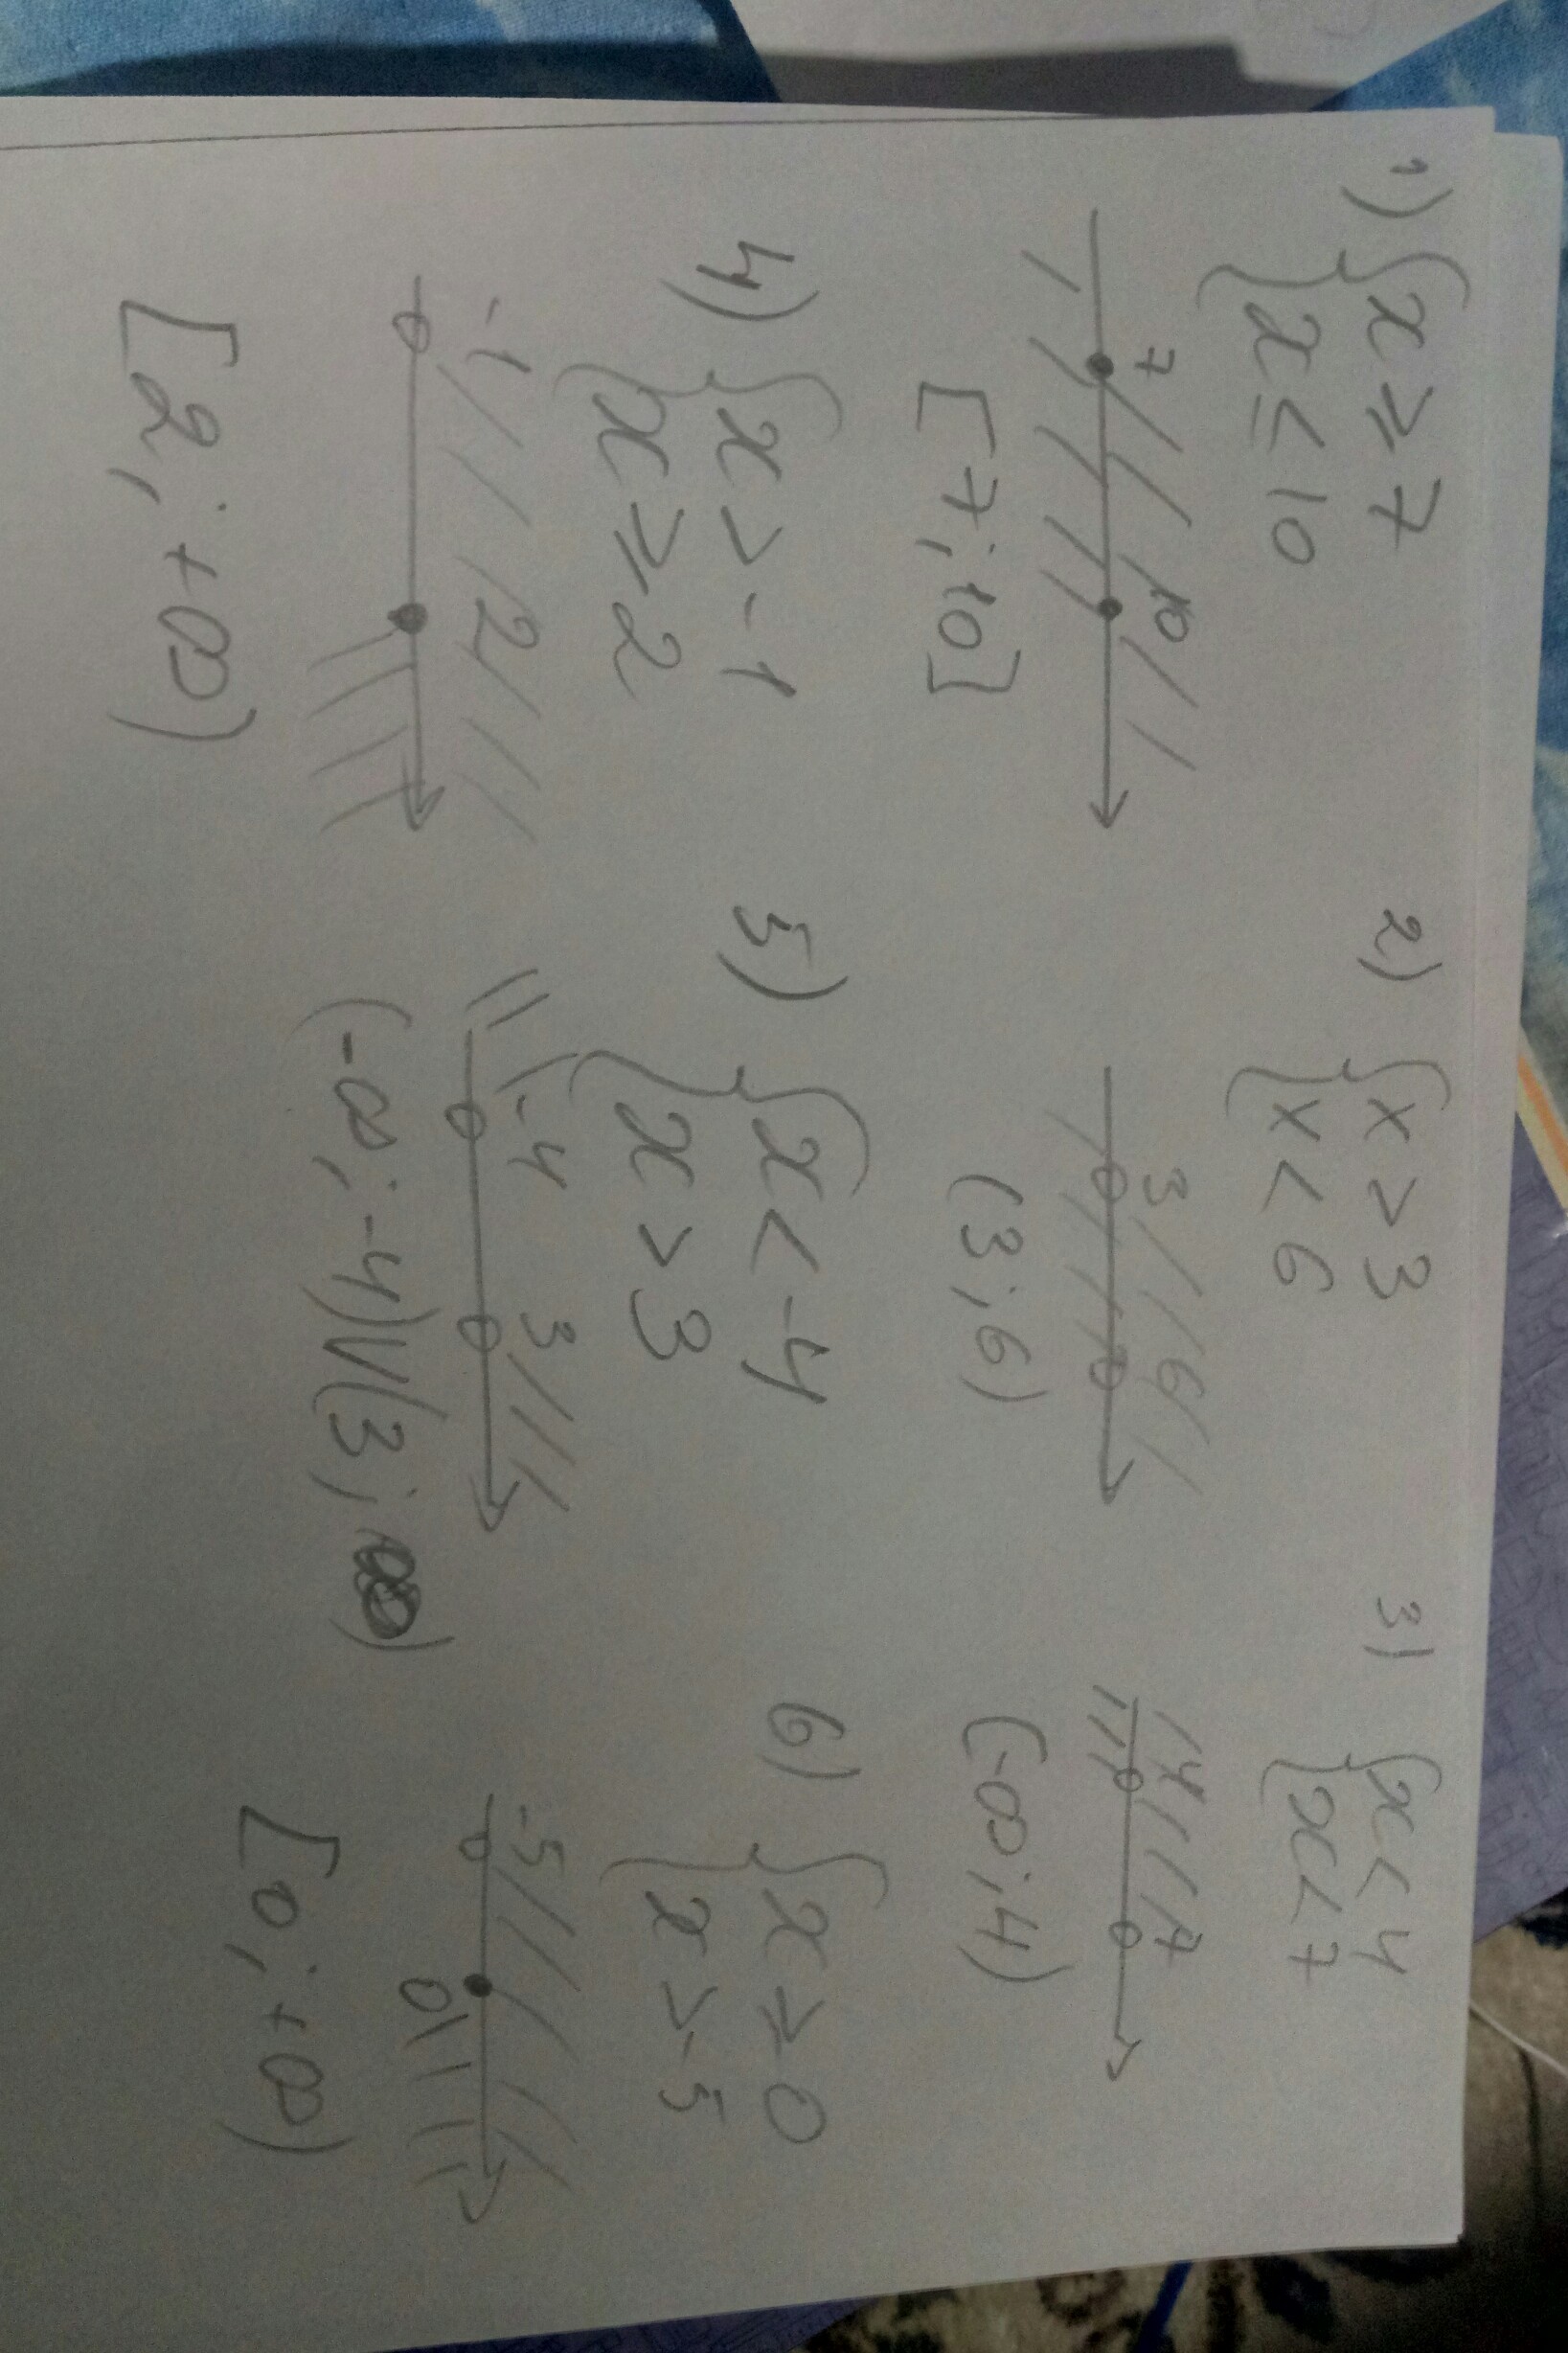 1) { x ≥ 7
{ x ≤ 10
7 10
[7; 10]
2) { x > 3
{ x < 6
3 6
(3; 6)
3) { x < 4
{ x < 7
4 7
(-∞; 4)
4) { x > -1
{ x ≥ 2
-1 2
[2; +∞)
5) { x < -4
{ x > 3
-4 3
(-∞; -4) V (3; ∞)
6) { x ≥ 0
{ x > -5
-5
0
[0; +∞)